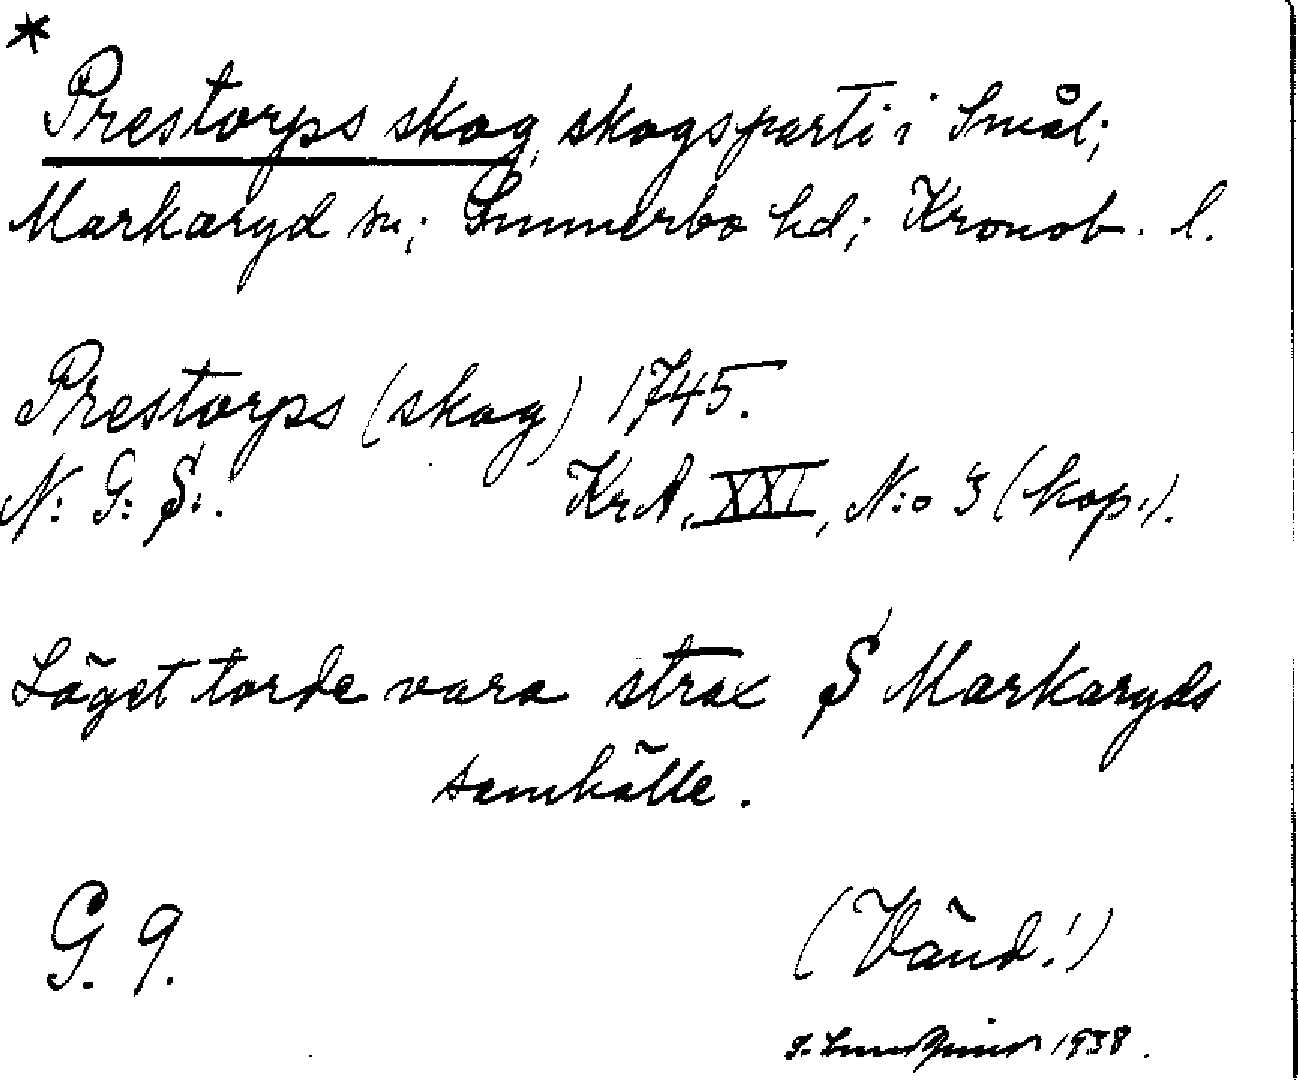 *
Prestorps skog, skogsparti i Smål;
Markaryd sn; Sunnerbo hd; Kronob. l.
Prestorps (skog) 1745.
N: G: S:. KrA, XXI, N:o 3 (kop.).
Läget torde vara strax S Markaryds
samhälle.
G. 9.
(Vänd!)
1938.